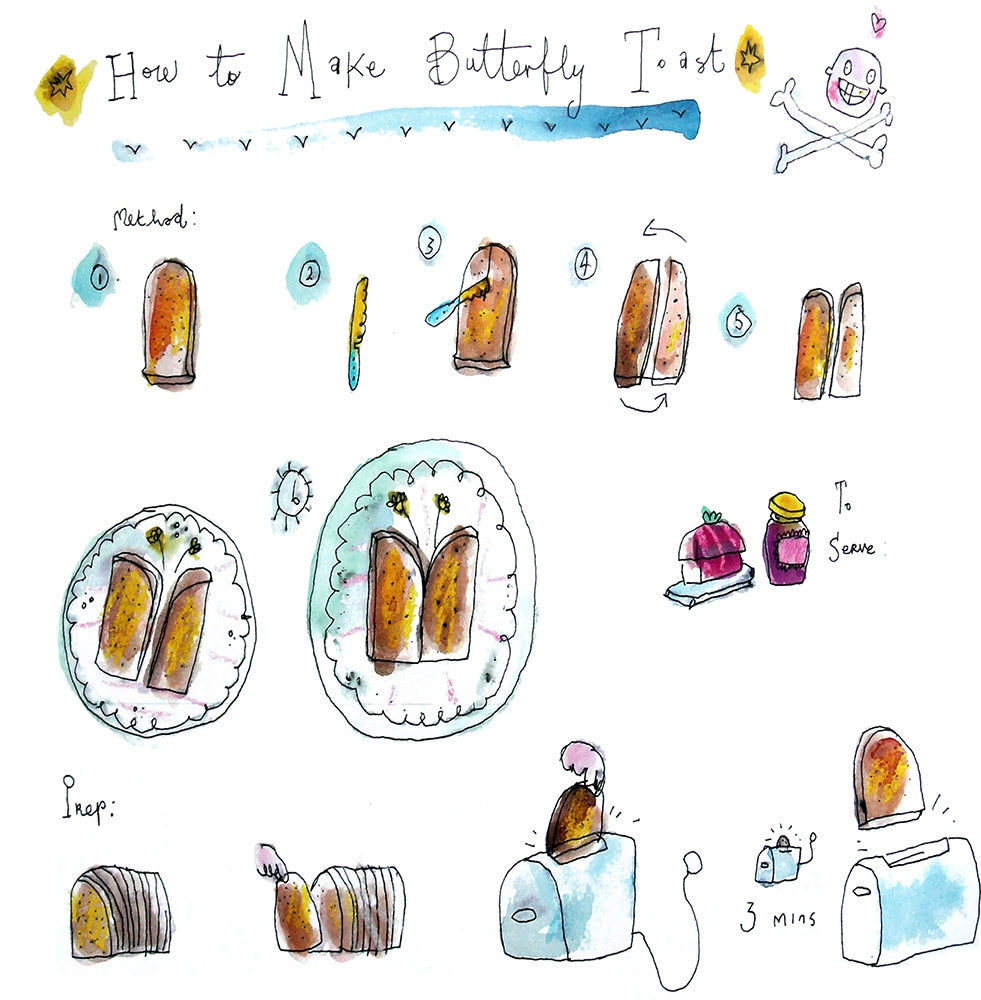 How to Make Butterfly Toast
Method:
1
2
3
4
5
6
To
Serve:
Prep:
3 mins